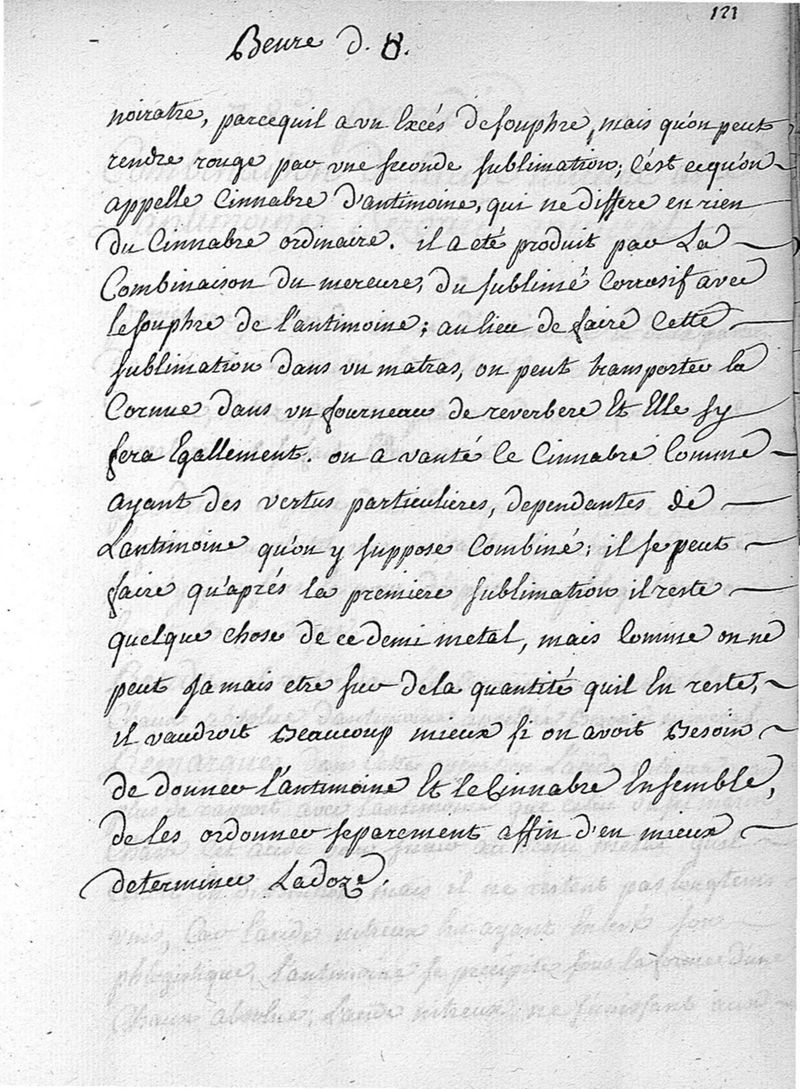 121
Beure d. ♁.
noiratre, parcequil a vn Excés de souphre, mais qu'on peut
rendre rouge par vne seconde sublimation; C'est ce qu'on
appelle Cinnabre d'antimoine, qui ne differe en rien
du Cinnabre ordinaire. il a eté produit par La
Combinaison du mercure, du sublimé Corrosif avec
le souphre de l'antimoine; au lieu de faire Cette
sublimation dans vn matras, on peut transporter la
Cornue dans vn fourneau de reverbere Et Elle sy
fera Egallement. on a vanté le Cinnabre Comme
ayant des vertus particulieres, dependantes de
L'antimoine qu'on y suppose Combiné; il se peut
faire qu'aprés la premiere sublimation il reste
quelque chose de ce demi metal, mais Comme on ne
peut Jamais etre sur de la quantité quil En reste,
il vaudroit Beaucoup mieux si on avoit Besoin
de donner l'antimoine Et le Cinnabre Ensemble,
de les ordonner separement affin d'en mieux
determiner La doze.